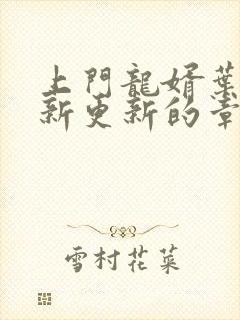 上門龍婿葉
新更新的章
雪村花菜